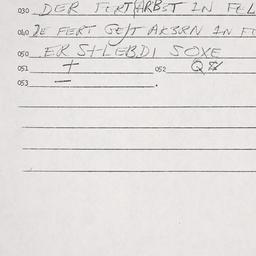 030 DER FERTARBST IN FEL
040 DE FERT GEST ARBRN IN FE
050 ER S+LEBDI SOXE
051 + 052 Q
053 — .